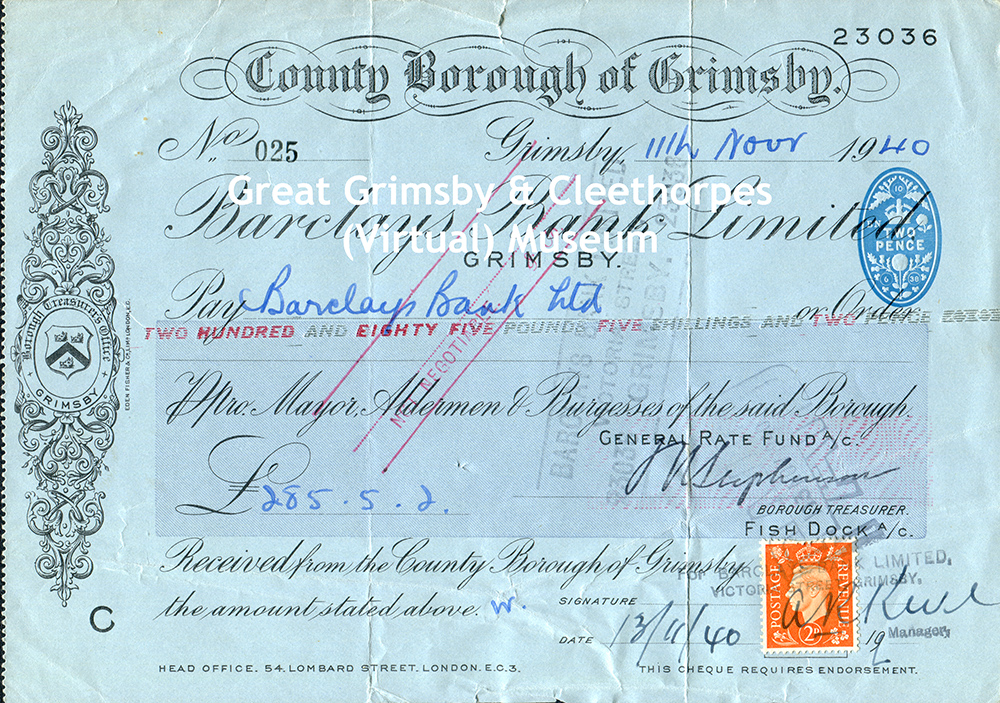 23036
County Borough of Grimsby.
No. 025 Grimsby, 11th Novr 1940
Great Grimsby & Cleethorpes
(Virtual) Museum
Barclays Bank Limited
GRIMSBY.
TWO PENCE
Pay Barclays Bank Ltd or Order
TWO HUNDRED AND EIGHTY FIVE POUNDS FIVE SHILLINGS AND TWO PENCE
NOT NEGOTIABLE
Borough Treasurer's Office
GRIMSBY
Pro. Mayor, Aldermen & Burgesses of the said Borough.
GENERAL RATE FUND A/C.
£285.5.2.
Stephenson
BOROUGH TREASURER.
FISH DOCK A/C.
Received from the County Borough of Grimsby
the amount stated above.
FOR BARCLAYS BANK LIMITED,
VICTORIA STREET, GRIMSBY,
SIGNATURE
POSTAGE REVENUE
2D
Manager
DATE 13/11/40 19
C
HEAD OFFICE. 54, LOMBARD STREET, LONDON. E.C.3. THIS CHEQUE REQUIRES ENDORSEMENT.